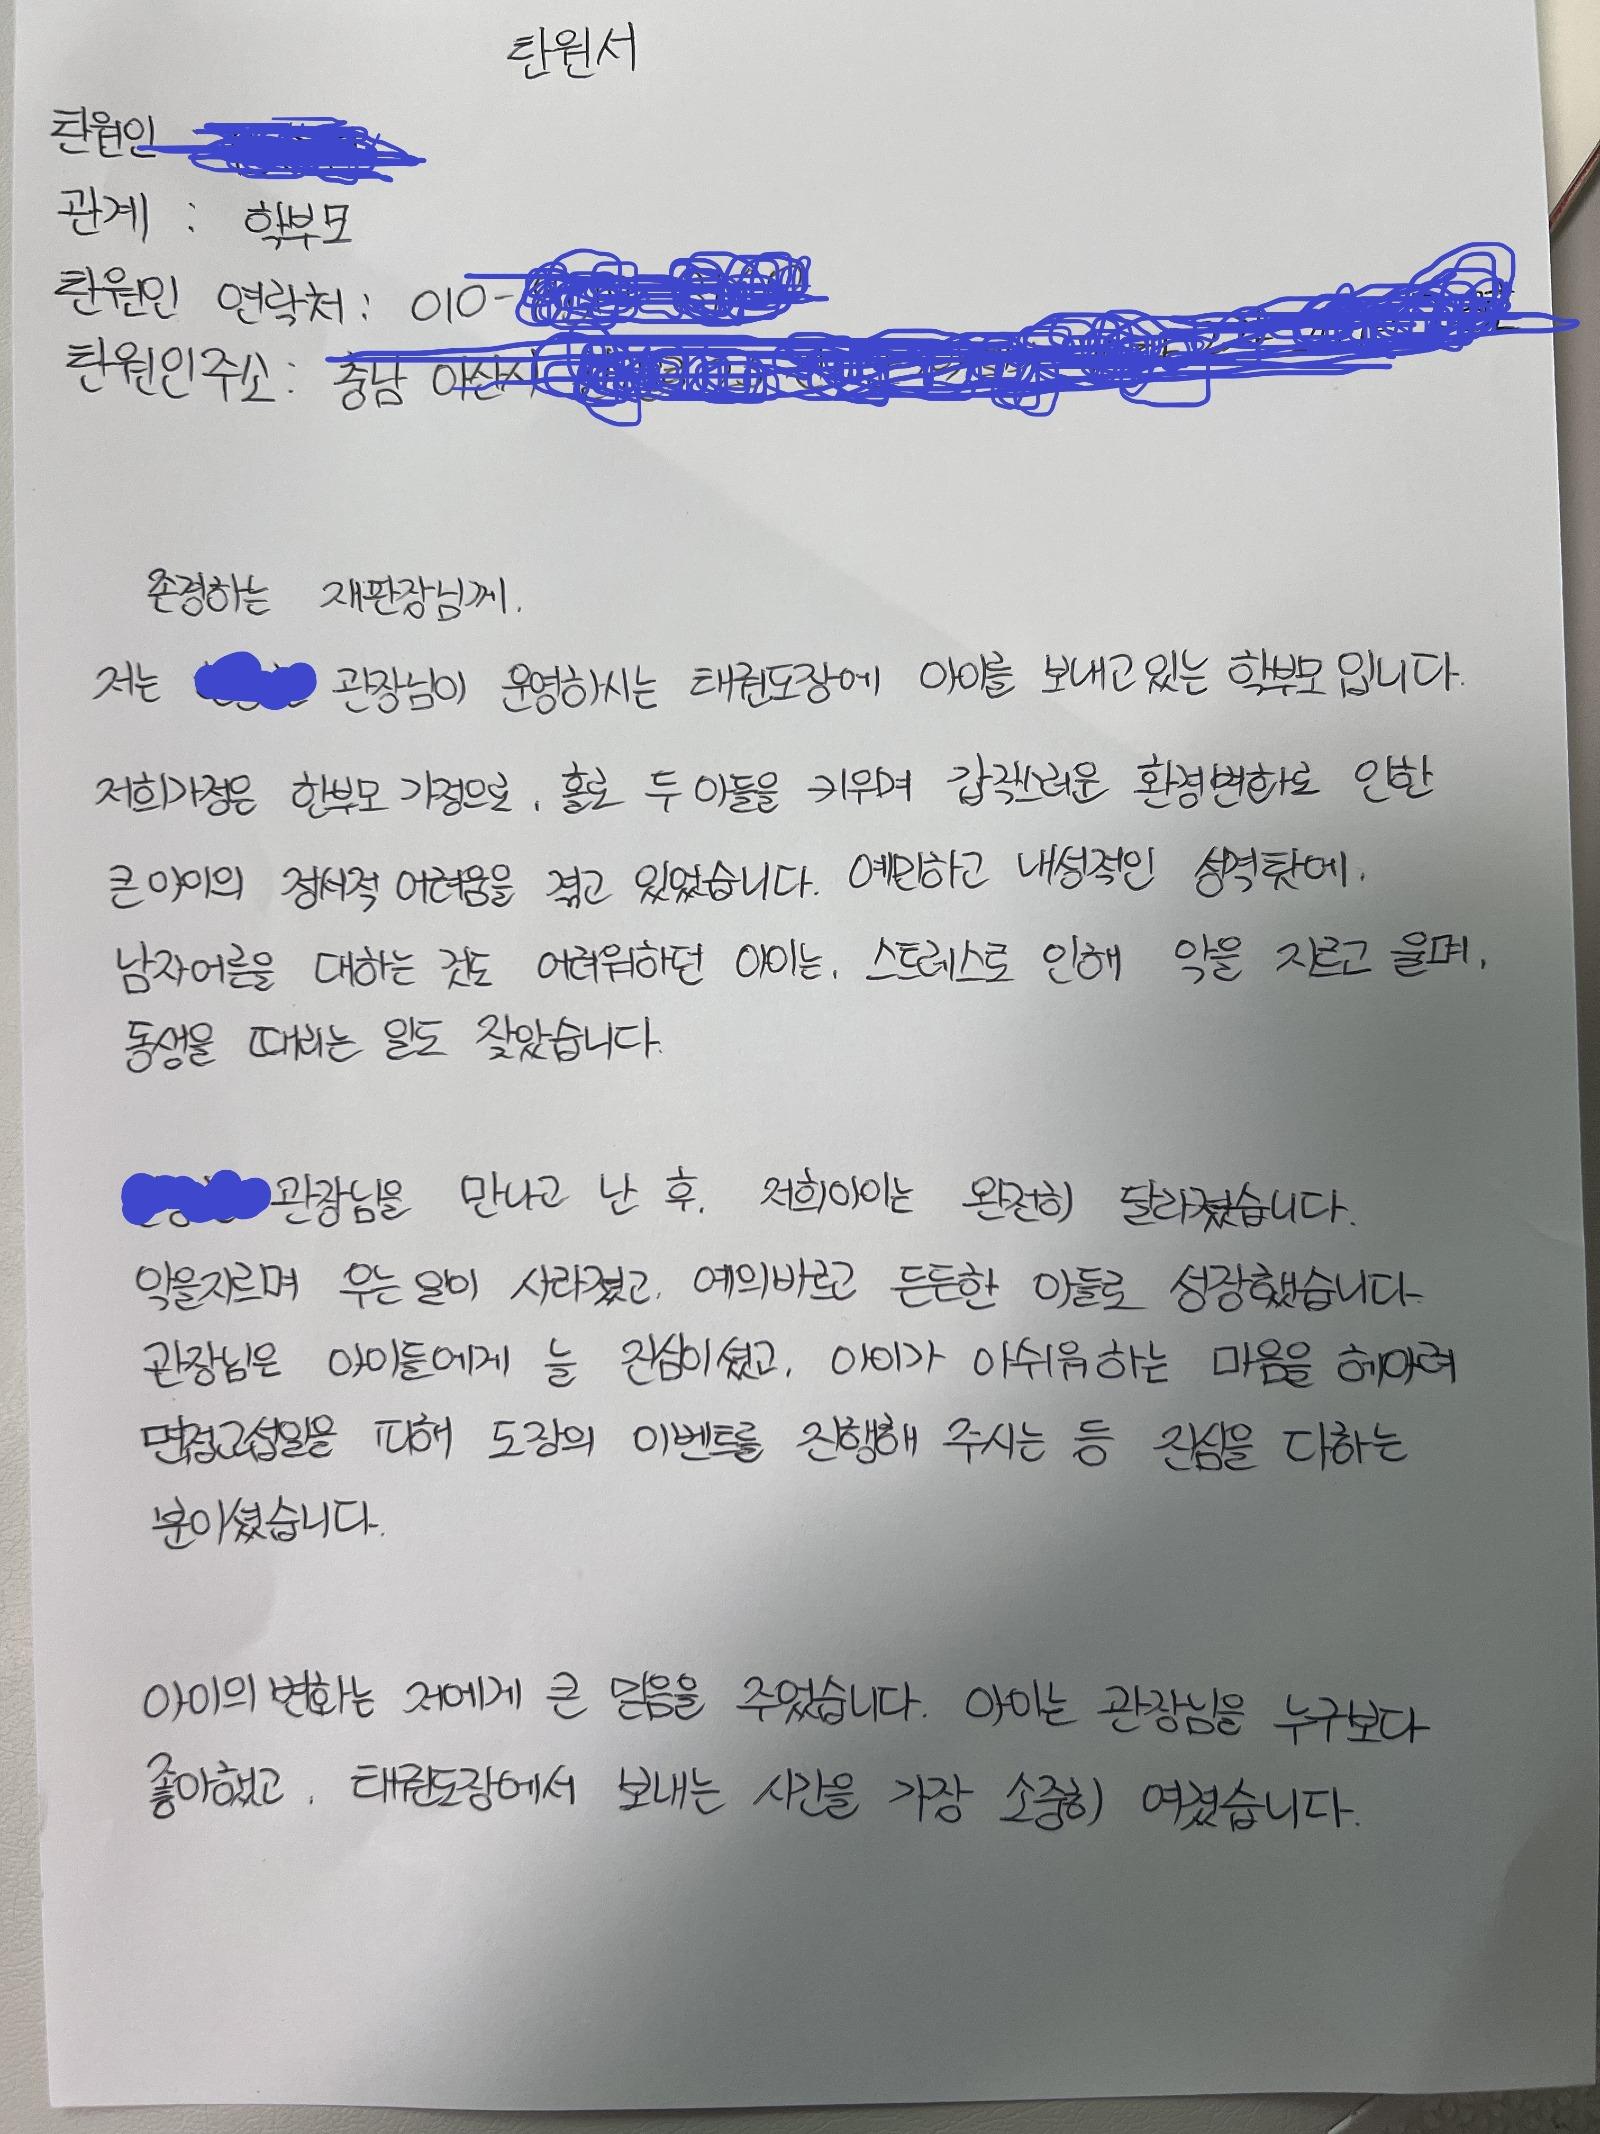 탄원서
탄원인
관계 : 학부모
탄원인 연락처 : 010-
탄원인주소 : 충남 아산시
존경하는 재판장님께.
저는 관장님이 운영하시는 태권도장에 아이를 보내고있는 학부모입니다.
저희가정은 한부모 가정으로, 홀로 두 아들을 키우며 갑작스러운 환경변화로 인한
큰아이의 정서적 어려움을 겪고 있었습니다. 예민하고 내성적인 성격탓에,
남자어른을 대하는 것도 어려워하던 아이는, 스트레스로 인해 악을 지르고 울며,
동생을 때리는 일도 잦았습니다.
관장님을 만나고 난 후, 저희아이는 완전히 달라졌습니다.
악을지르며 우는일이 사라졌고, 예의바르고 든든한 아들로 성장했습니다.
관장님은 아이들에게 늘 진심이셨고, 아이가 아쉬워하는 마음을 헤아려
면접교섭일을 피해 도장의 이벤트를 진행해 주시는 등 진심을 다하는
분이셨습니다.
아이의 변화는 저에게 큰 믿음을 주었습니다. 아이는 관장님을 누구보다
좋아했고, 태권도장에서 보내는 시간을 가장 소중히 여겼습니다.